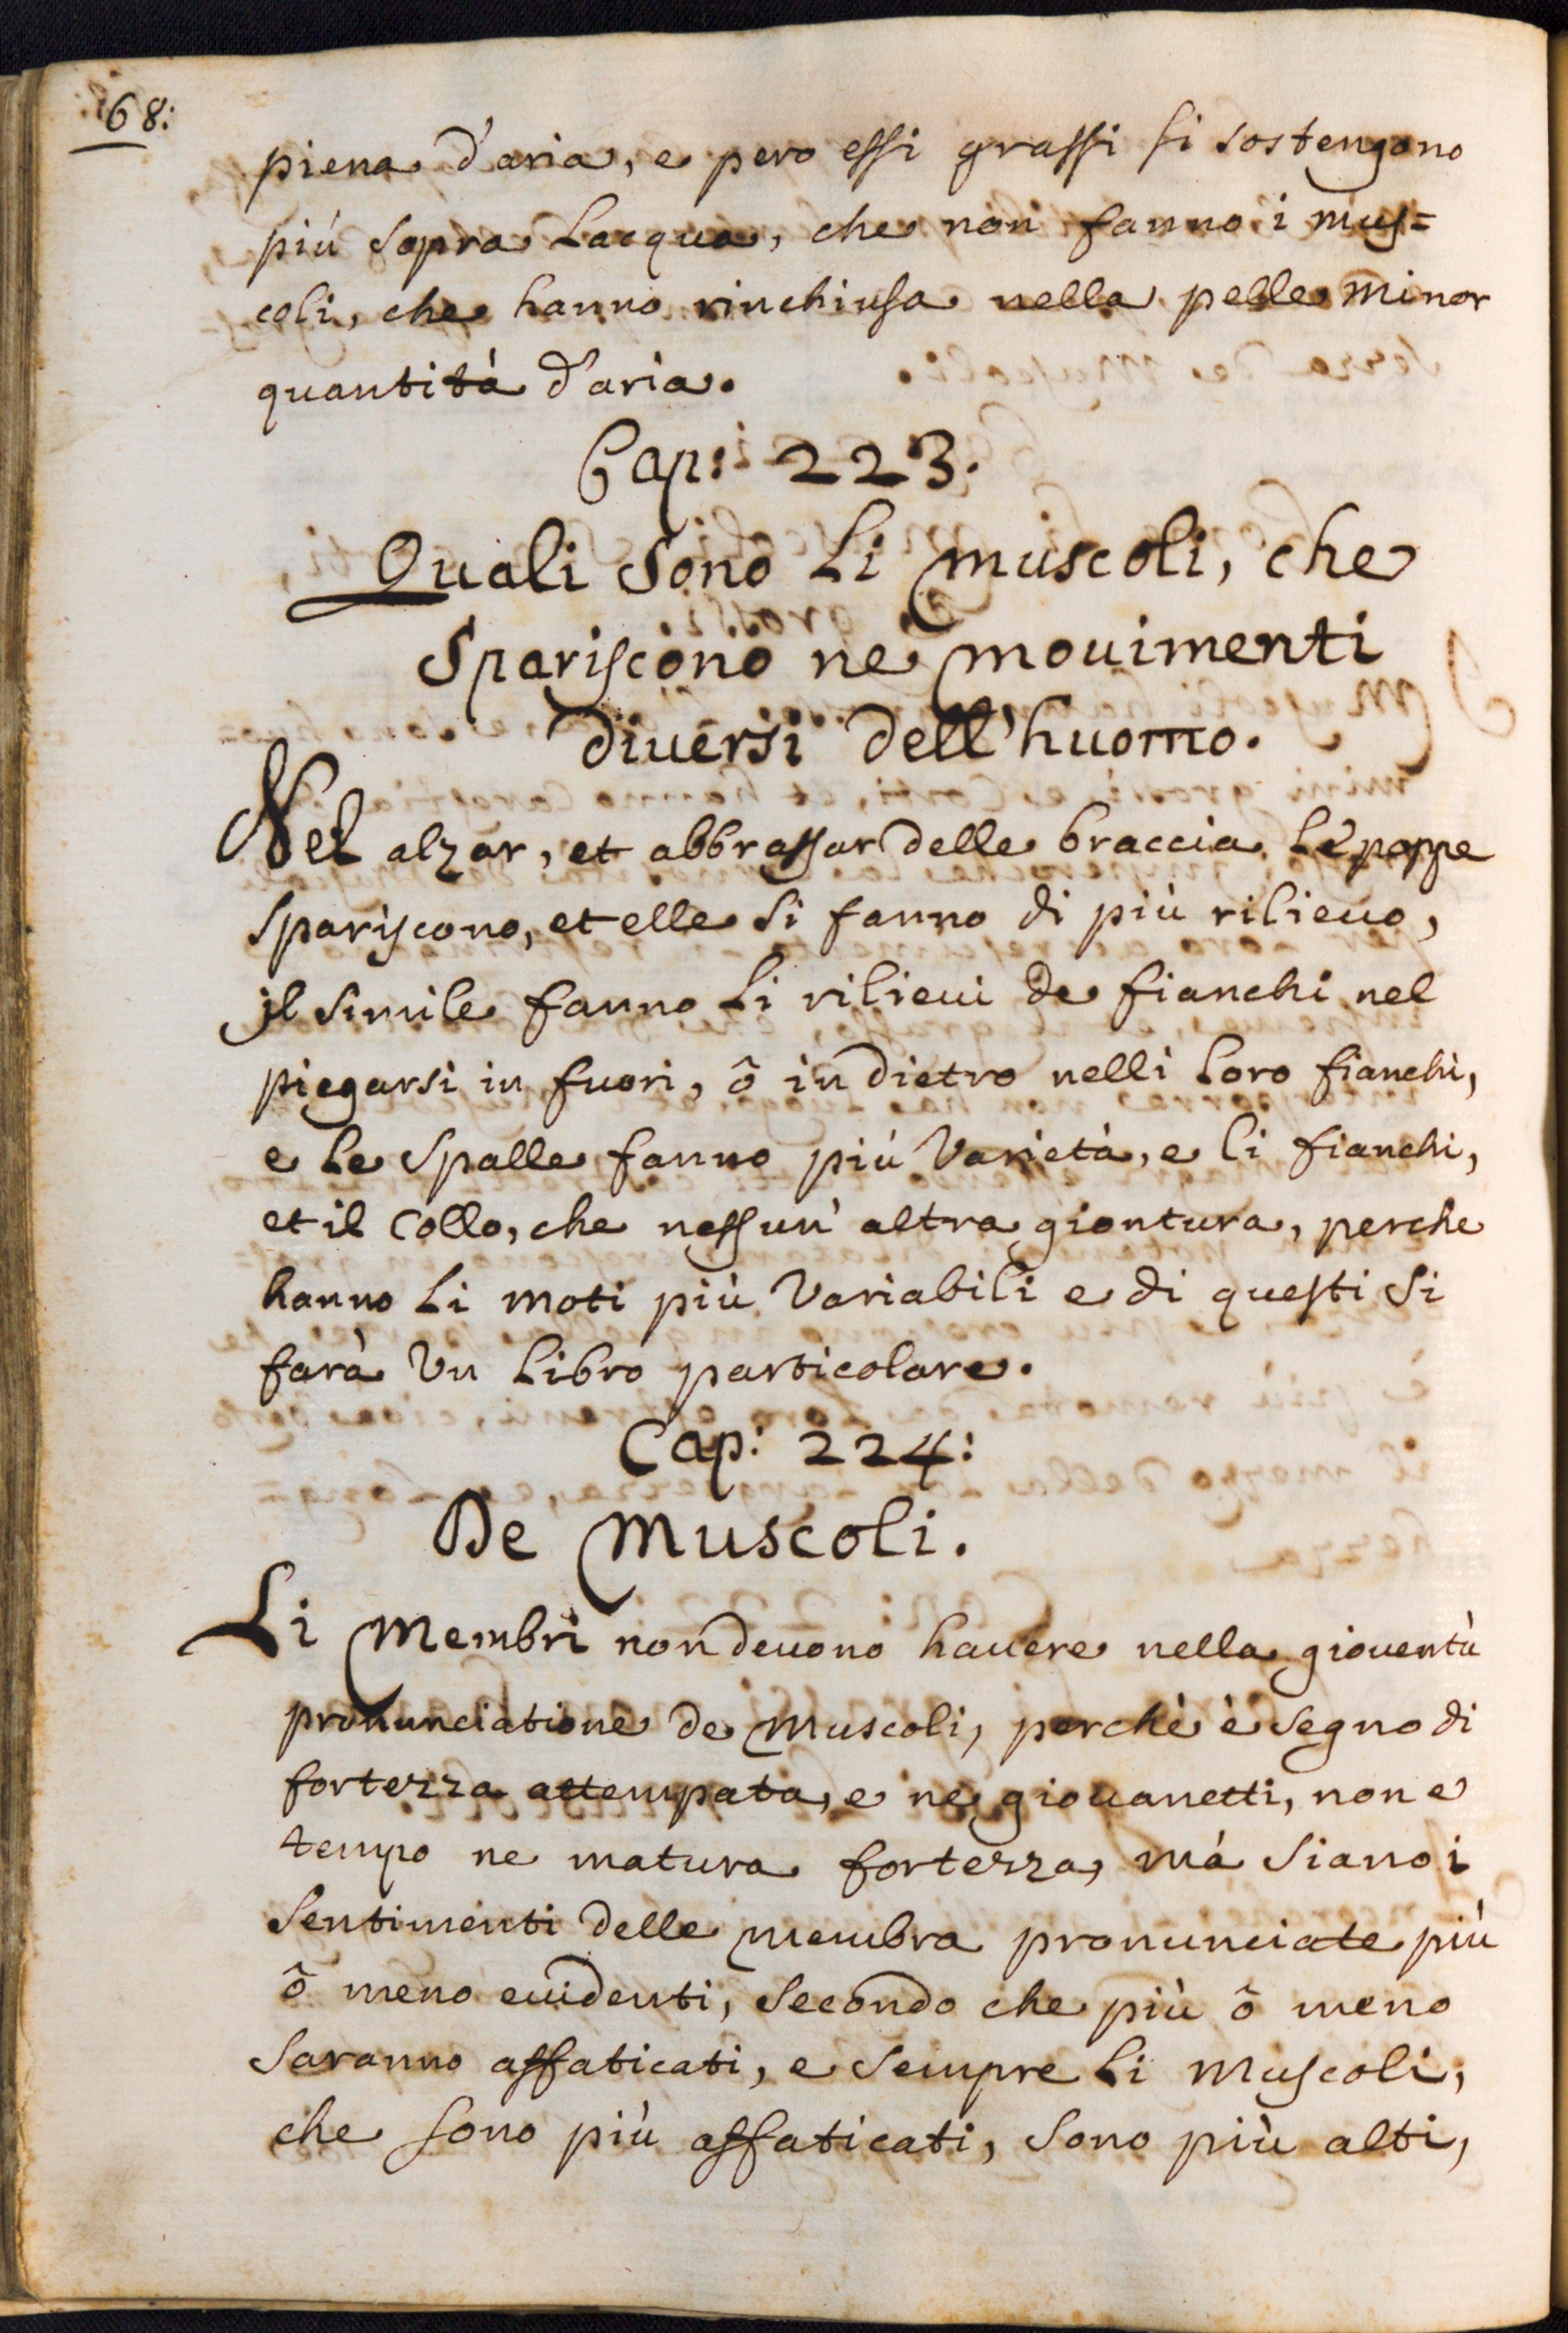 68:
piena d'aria, e pero essi grassi si sostengono
più sopra Lacqua, che non fanno i mus=
coli, che hanno rinchiusa nella pelle minor
quantità d'aria.
Cap: 223.
Quali sono Li muscoli, che
Spariscono ne mouimenti
diuersi dell'huomo.
Nel alzar, et abbrassar delle braccia Le poppe
spariscono, et elle si fanno di più rilieuo,
il simile fanno Li rilieui de fianchi nel
piegarsi in fuori, ô in dietro nelli Loro fianchi,
e Le spalle fanno più Varietà, e li fianchi,
et il Collo, che nessun' altra giontura, perche
hanno Li moti più Variabili e di questi si
farà Vn Libro particolare.
Cap: 224:
De Muscoli.
Li Membri non deuono hauere nella giouentù
pronunciatione de Muscoli, perchè è segno di
fortezza attempata, e ne giouanetti, non e
tempo ne matura fortezza, mà siano i
sentimenti delle membra pronunciate più
ô meno euidenti, secondo che più ô meno
saranno affaticati, e sempre Li Muscoli,
che sono più affaticati, sono più alti,